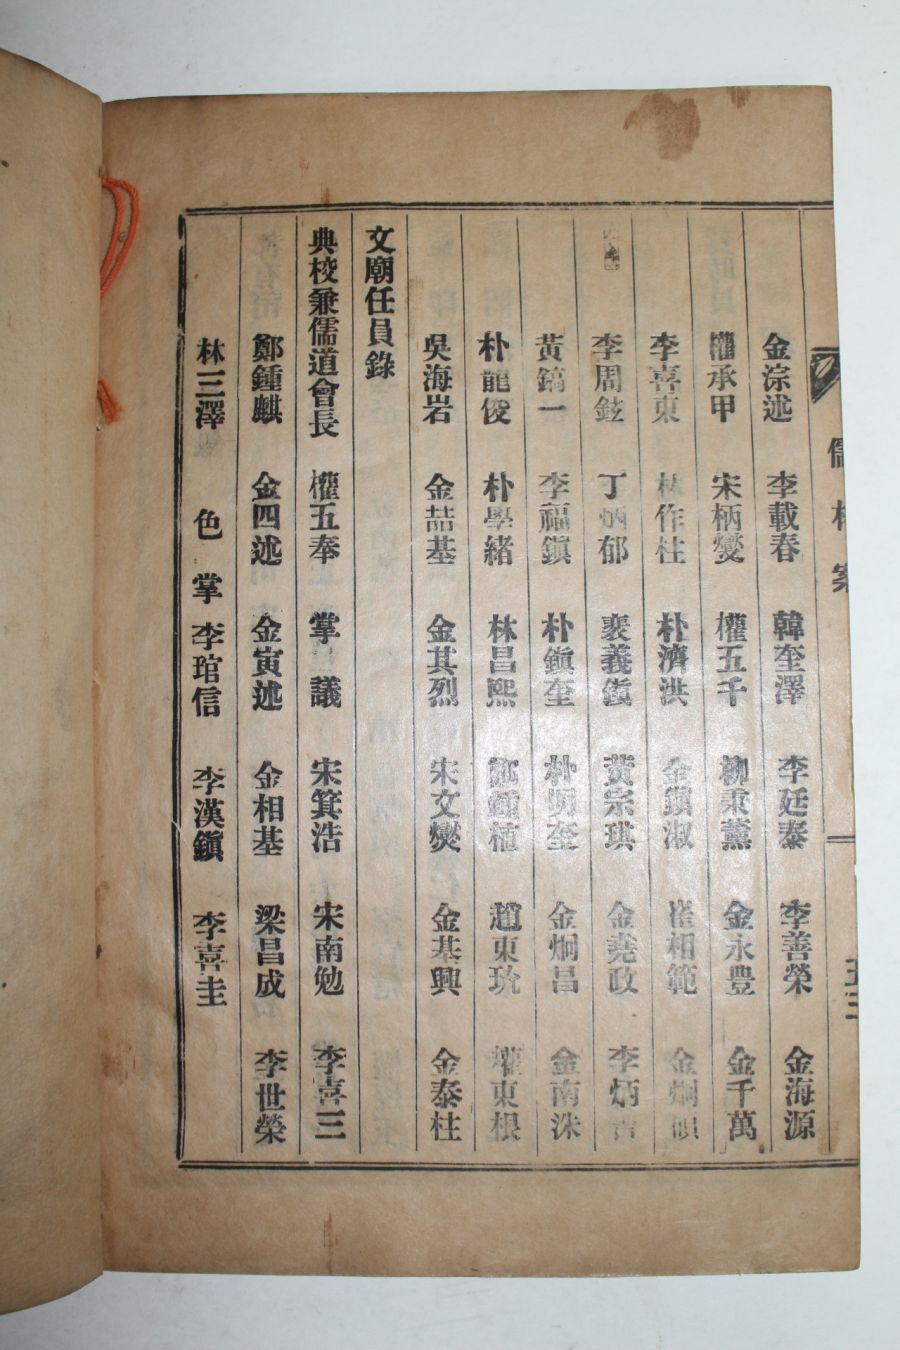 儒林案
五三
金淙述 李載春 韓奎澤 李廷泰 李善榮 金海源
權承甲 宋柄燮 權五千 柳秉薰 金永豊 金千萬
李喜東 林作柱 朴濟洪 金鎭淑 崔相範 金炯
李周鉉 丁炳郁 裵義鎮 黃宗琪 金堯政 李炳
黃鎬一 李福鎭 朴鎭奎 朴明奎 金炯昌 金南洙
朴龍俊 朴學緖 林昌熙 鄭鍾植 趙東玧 權東根
吳海岩 金喆基 金其烈 宋文爕 金基興 金泰柱
文廟任員錄
典校兼儒道會長 權五奉 掌議 宋箕浩 宋南勉 李喜三
鄭鍾麒 金四述 金寅述 金相基 梁昌成 李世榮
林三澤 色掌 李琯信 李漢鎭 李喜圭